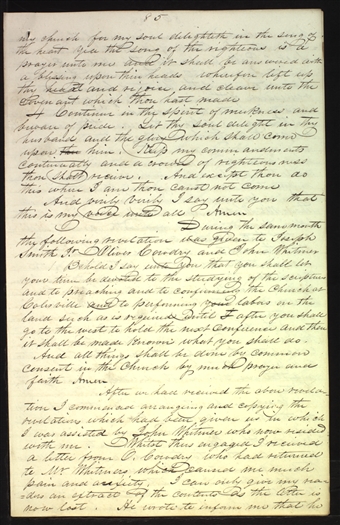 85
my church for my soul delighteth in the song of
the heart yea the song of the righteous is a
prayer unto me and it shall be answered with
a blessing upon their heads wherefore lift up
thy heart and rejoice and cleave unto the
covenant which thou hast made
4 Continue in the spirit of meekness and
beware of pride. Let thy soul delight in thy
husband and the glory which shall come
upon him. Keep my commandments
continually and a crown of righteousness
thou shalt receive. And except thou do
this where I am thou canst not come
And verily verily I say unto you that
this is my voice unto all Amen
During the same month
the following revelation was given to Joseph
Smith Jr. Oliver Cowdry and John Whitmer
Behold I say unto you that you shall let
your time be devoted to the studying of the scriptures
and to preaching and to confirming the Church at
Colesville and to performing your labors on the
land such as is required Until I after you shall
go to the west to hold the next Conference and then
it shall be made known what you shall do.
And all things shall be done by common
consent in the Church by much prayer and
faith Amen
After we had received the above revela-
tion I commenced arranging and copying the
revelations which had been given us in which
I was assisted by John Whitmer who now resided
with me. Whilst thus engaged I received
a letter from O. Cowdry who had returned
to Mr Whitmers which caused me much
pain and anxiety. I can only give my rea-
ders an extract of the contents as the letter is
now lost. He wrote to inform me that he